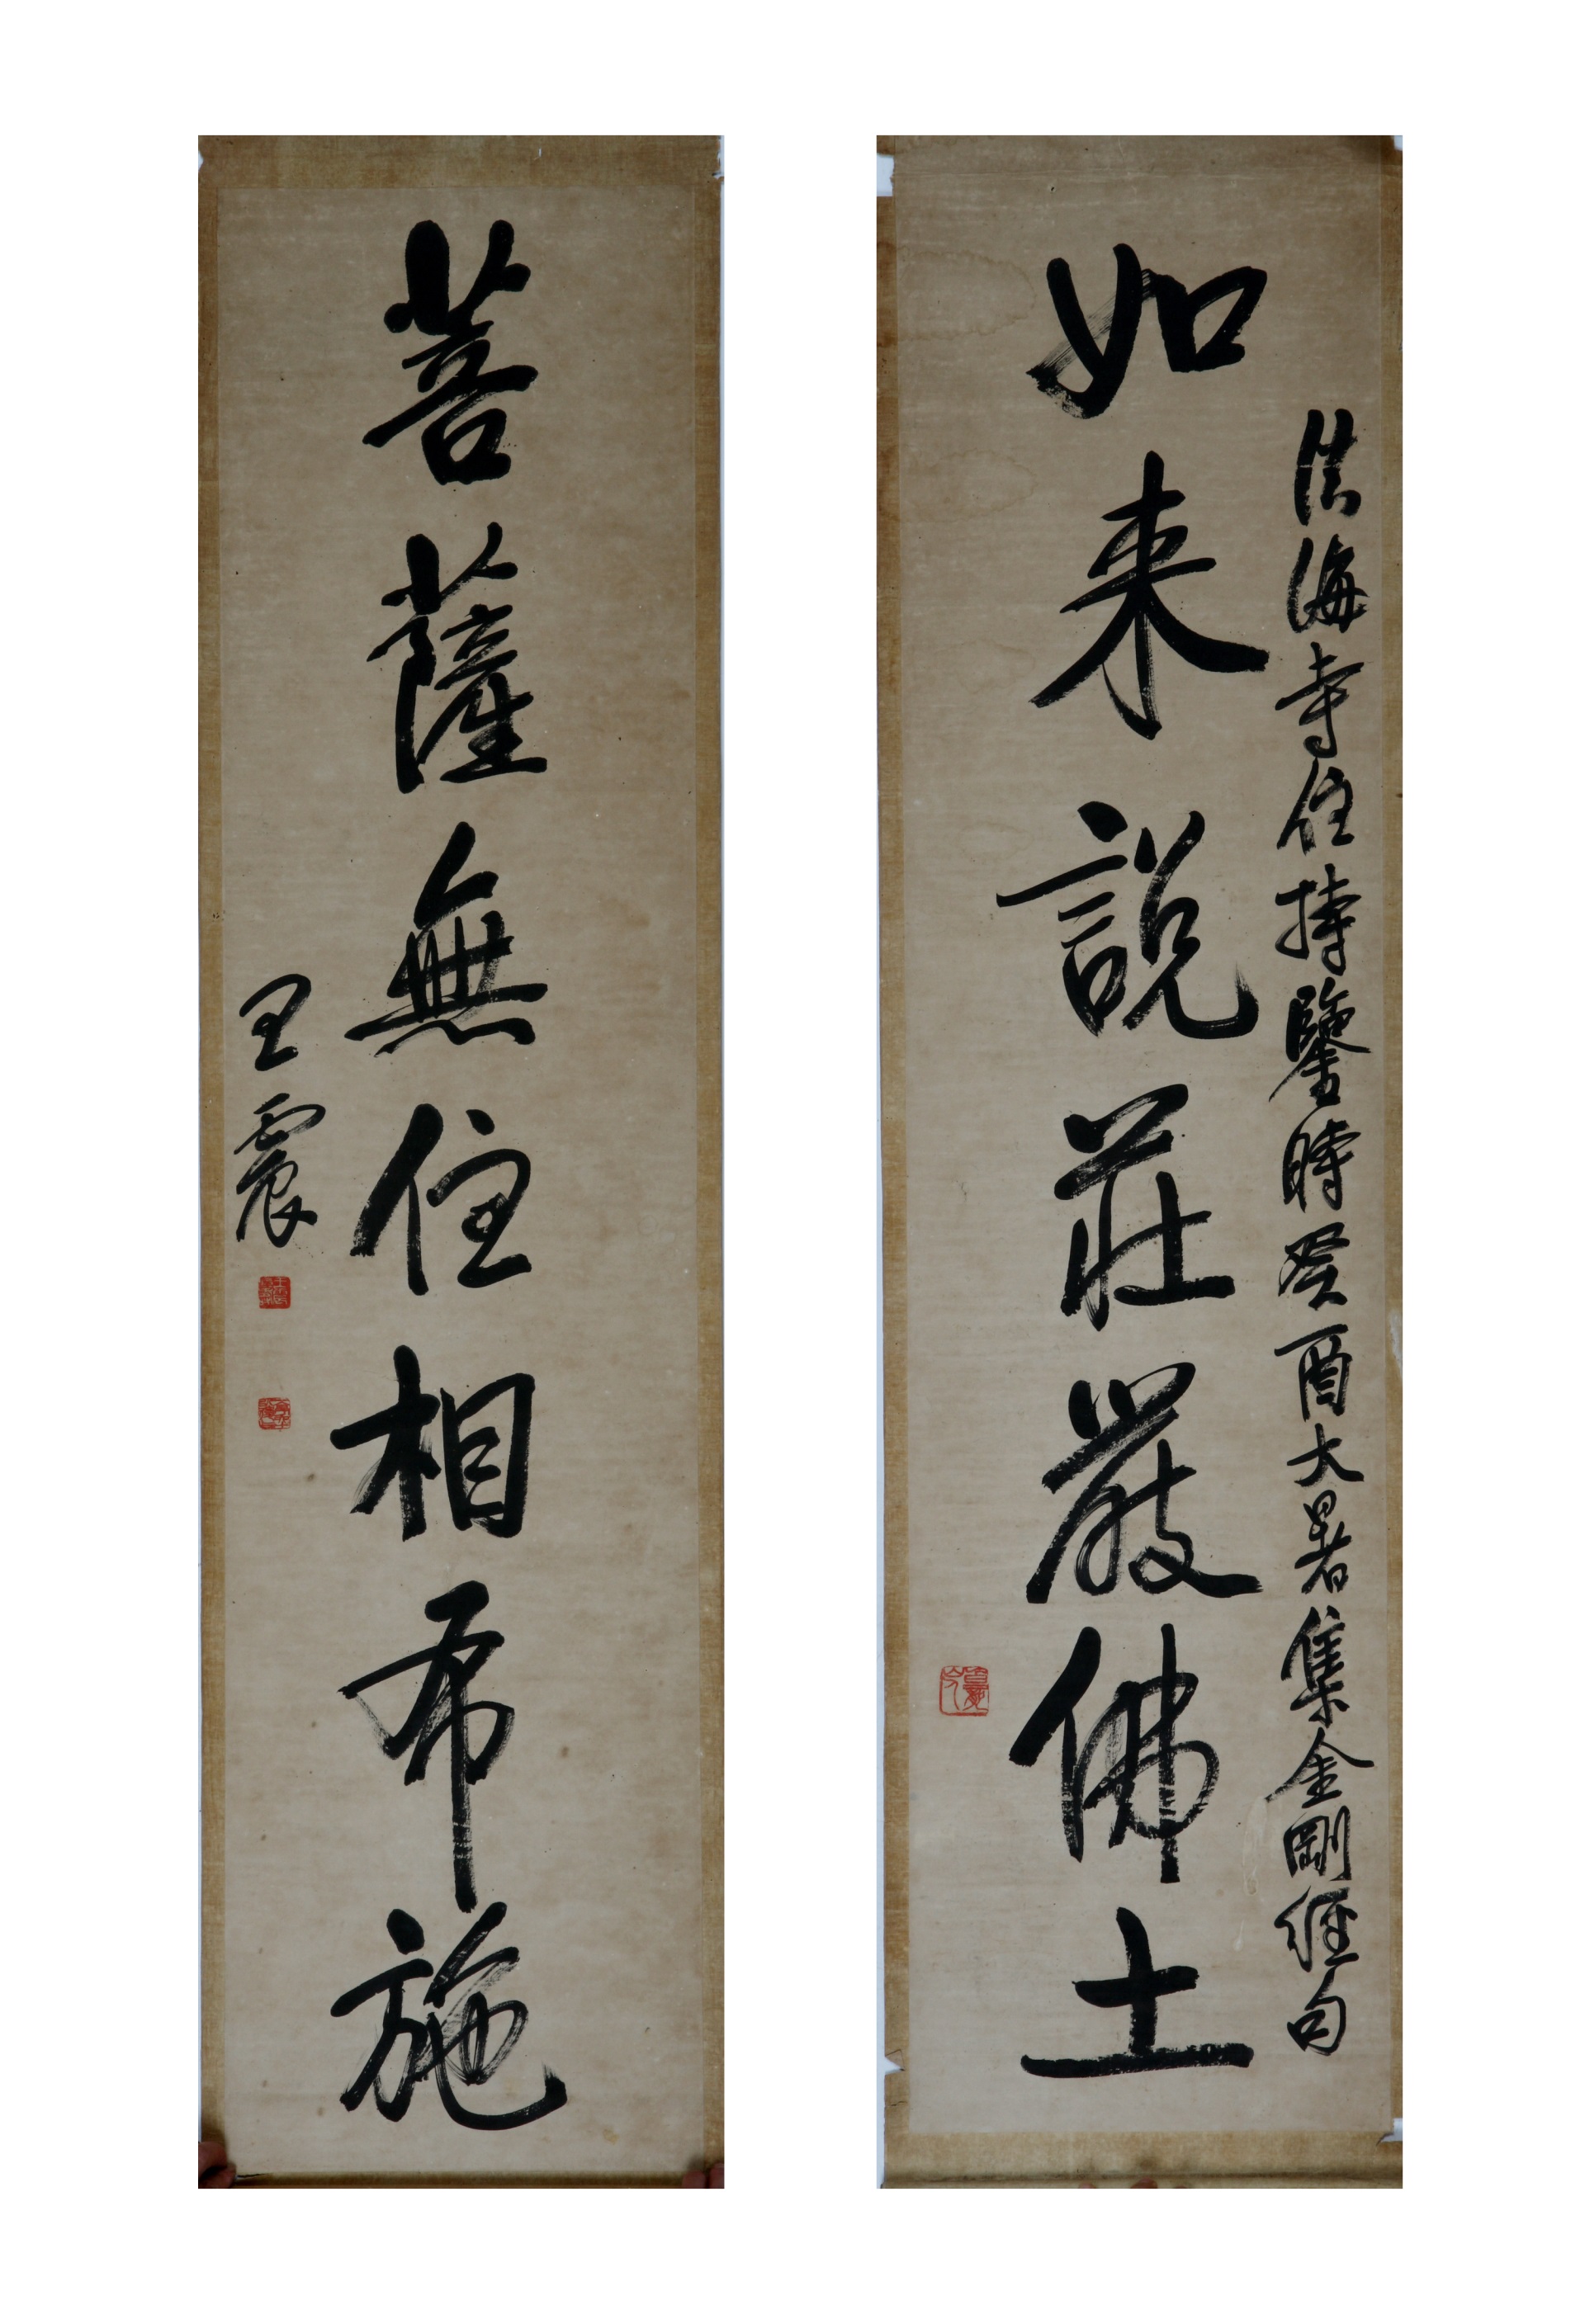 法海寺住持鑒時癸酉大暑集金剛經句
如来說莊嚴佛土
菩薩無住相布施
王震